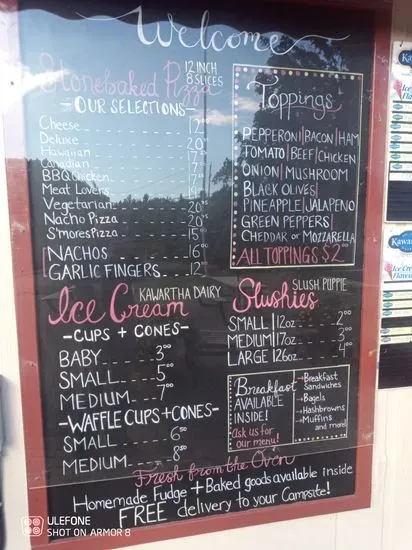 Welcome
Stonebaked Pizza 12 INCH 8 SLICES
-OUR SELECTIONS-
Cheese
Deluxe
Hawaiian
Canadian
BBQ Chicken
Meat Lovers
Vegetarian
Nacho Pizza
S'mores Pizza
NACHOS
GARLIC FINGERS
Toppings
PEPPERONI|BACON|HAM
TOMATO|BEEF|CHICKEN
ONION|MUSHROOM
BLACK OLIVES|
PINEAPPLE|JALAPENO
GREEN PEPPERS|
CHEDDAR or MOZZARELLA
ALL TOPPINGS $2.00
Ice Cream KAWARTHA DAIRY
-CUPS + CONES-
BABY 3.00
SMALL 5.00
MEDIUM 7.00
-WAFFLE CUPS + CONES-
SMALL 6.50
MEDIUM 8.50
Slushies SLUSH PUPPIE
SMALL|12oz 2.00
MEDIUM|17oz 3.00
LARGE|26oz 4.00
Breakfast
AVAILABLE
INSIDE!
Ask us for
our menu!
→Breakfast
Sandwiches
→Bagels
→Hashbrowns
→Muffins
and more!
Fresh from the Oven
Homemade Fudge + Baked goods available inside
FREE delivery to your Campsite!
ULEFONE
SHOT ON ARMOR 8